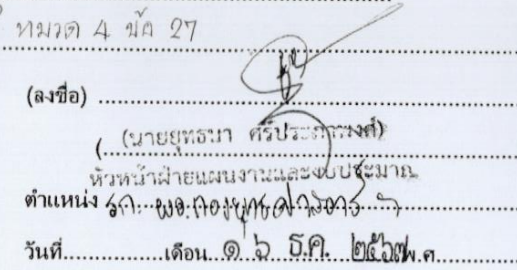 หมวด 4 ข้อ 27
(ลงชื่อ) ..............................
( (นายยุทธนา ศรีประภาพงศ์)
หัวหน้าฝ่ายแผนงานและงบประมาณ
ตำแหน่ง รก. ผอ.กองยุทธศาสตร์ ฯ
วันที่..............เดือน ๑๖ ธ.ค. ๒๕๖๗ พ.ศ.